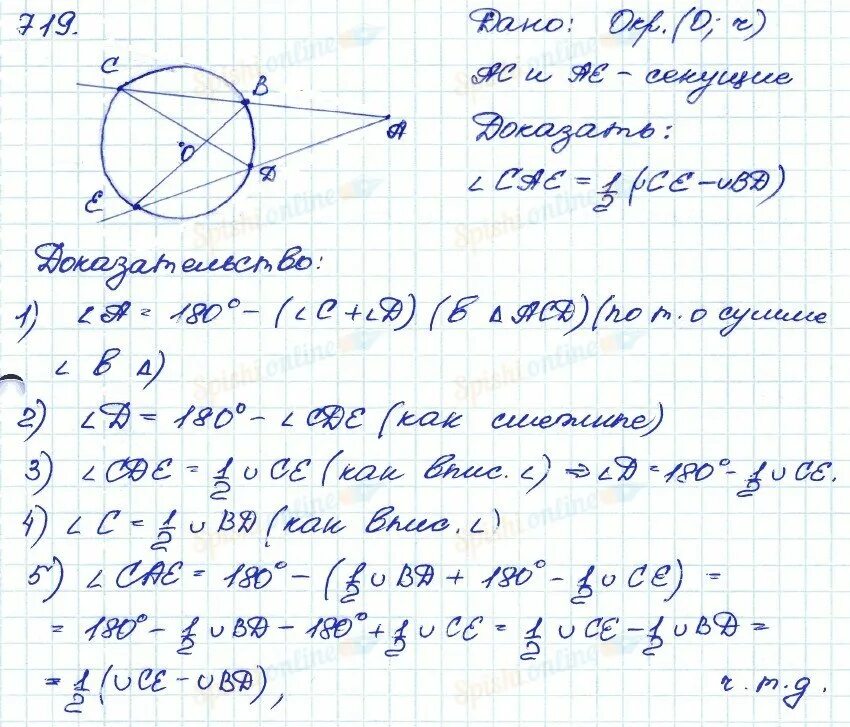 719.
Дано: Окр. (O; r)
AC и AE - секущие
Доказать:
∠CAE = 1/2 (∪CE - ∪BD)
C
B
A
O
D
E
Доказательство:
1) ∠A = 180° - (∠C + ∠D) (в △ACD) (по т. о сумме
∠ в △)
2) ∠D = 180° - ∠CDE (как смежные)
3) ∠CDE = 1/2 ∪CE (как впис. ∠) ⇒ ∠D = 180° - 1/2 ∪CE.
4) ∠C = 1/2 ∪BD (как впис. ∠)
5) ∠CAE = 180° - (1/2 ∪BD + 180° - 1/2 ∪CE) =
= 180° - 1/2 ∪BD - 180° + 1/2 ∪CE = 1/2 ∪CE - 1/2 ∪BD =
= 1/2 (∪CE - ∪BD), ч.т.д.
Spishi.online